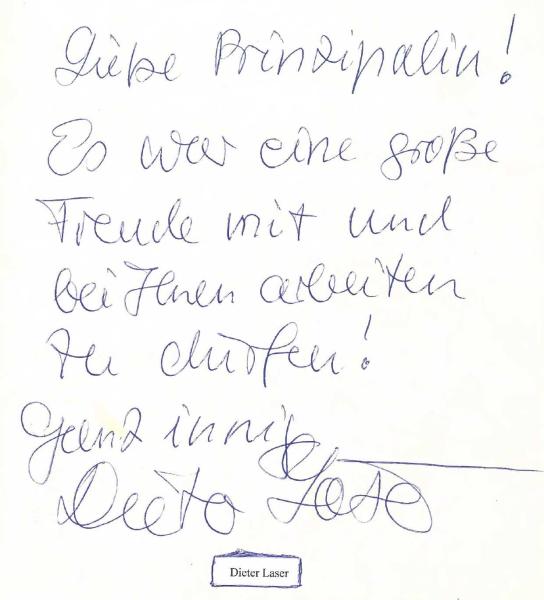 Liebe Prinzipalin!
Es war eine große
Freude mit und
bei Ihnen arbeiten
zu dürfen!
Ganz innig
Dieter Laser
Dieter Laser